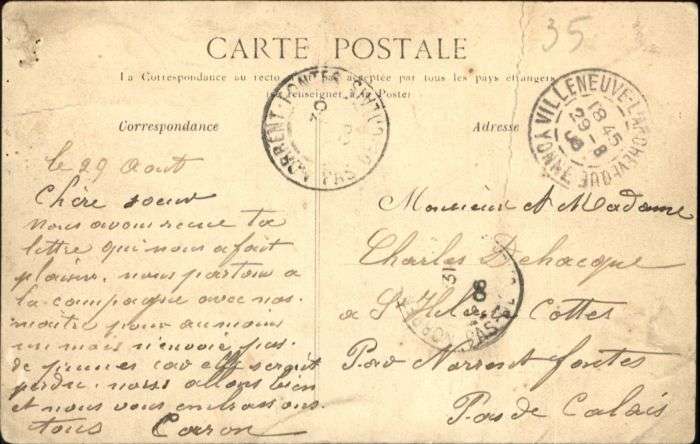 35
CARTE POSTALE
La Correspondance au recto n'est pas acceptée par tous les pays étrangers
(se renseigner à la Poste)
Correspondance
Adresse
NORRENT-FONTES
PAS-DE-CALAIS
VILLENEUVE-L'ARCHEVEQUE
YONNE
18 45
29 - 8
08
le 29 Aout
Chère soeur
nous avons recue ta
lettre qui nous a fait
plaisir. nous partons a
la campagne avec nos
maitre pour au moins
un mois n'envoie pas
de car elle serait
perdu. nous allons bien
et nous vous embrassons
tous Caron
Monsieur et Madame
Charles Dehacque
a St Hilaire Cottes
Par Norrent fontes
Pas de Calais
31
08
PAS